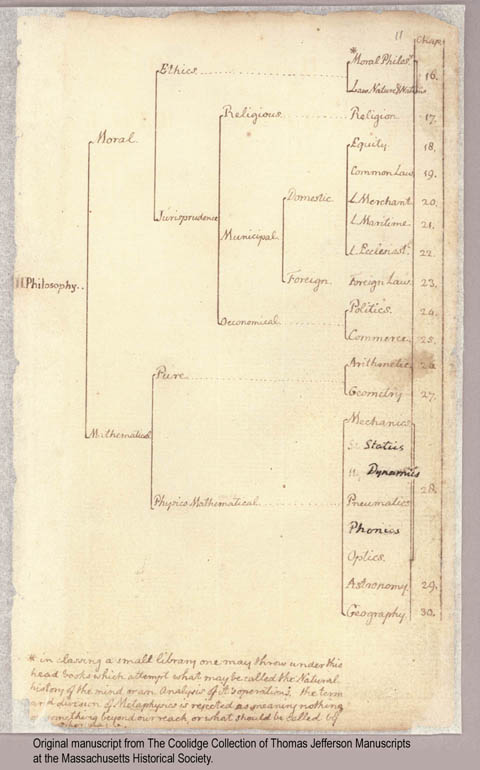 11
Chap.
Ethics
*Moral Philos.y
16.
Law Nature & Nations
Religious
Religion
17.
Moral
Equity
18.
Common Law
19.
Domestic
L. Merchant
20.
Jurisprudence
L. Maritime
21.
Municipal
L. Ecclesiast.l
22.
II. Philosophy
Foreign
Foreign Law
23.
Oeconomical
Politics
24.
Commerce
25.
Pure
Arithmetic
26.
Geometry
27.
Mechanics
Mathematical
Statics
Dynamics
28.
Physico Mathematical
Pneumatics
Phonics
Optics
Astronomy
29.
Geography
30.
* in classing a small library one may throw under this
head books which attempt what may be called the Natural
history of the mind or an Analysis of it's operations. the term
and division of Metaphysics is rejected as meaning nothing
or something beyond our reach, or what should be called by
Original manuscript from The Coolidge Collection of Thomas Jefferson Manuscripts
at the Massachusetts Historical Society.